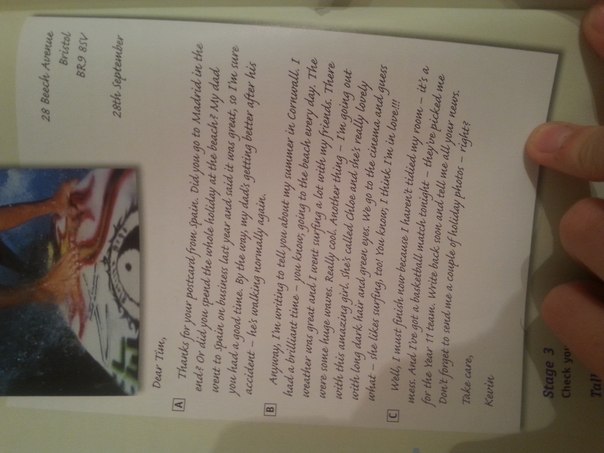 28 Beech Avenue
Bristol
BR9 8SV
28th September
Dear Tim,
A Thanks for your postcard from Spain. Did you go to Madrid in the
end? Or did you spend the whole holiday at the beach? My dad
went to Spain on business last year and said it was great, so I'm sure
you had a good time. By the way, my dad's getting better after his
accident – he's walking normally again.
B Anyway, I'm writing to tell you about my summer in Cornwall. I
had a brilliant time – you know, going to the beach every day. The
weather was great and I went surfing a lot with my friends. There
were some huge waves. Really cool. Another thing – I'm going out
with this amazing girl. She's called Chloe and she's really lovely
with long dark hair and green eyes. We go to the cinema and guess
what – she likes surfing, too! You know, I think I'm in love!!!
C Well, I must finish now because I haven't tidied my room – it's a
mess. And I've got a basketball match tonight – they've picked me
for the Year 11 team. Write back soon and tell me all your news.
Don't forget to send me a couple of holiday photos – right?
Take care,
Kevin
Stage 3
Check you